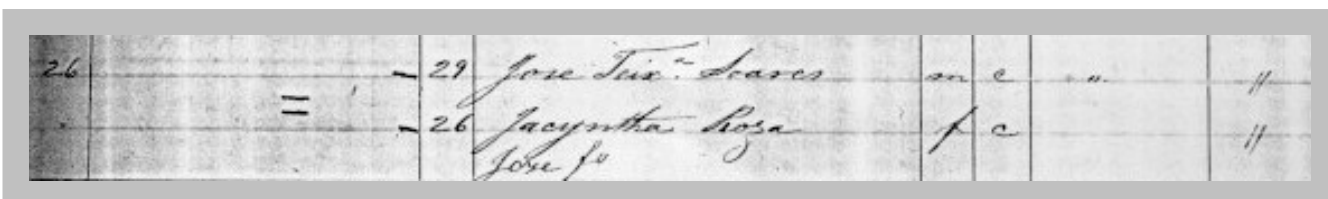 26 = - 29 Jose Teixª Soares m c " "
- 26 Jacyntha Roza f c "
Jose fº